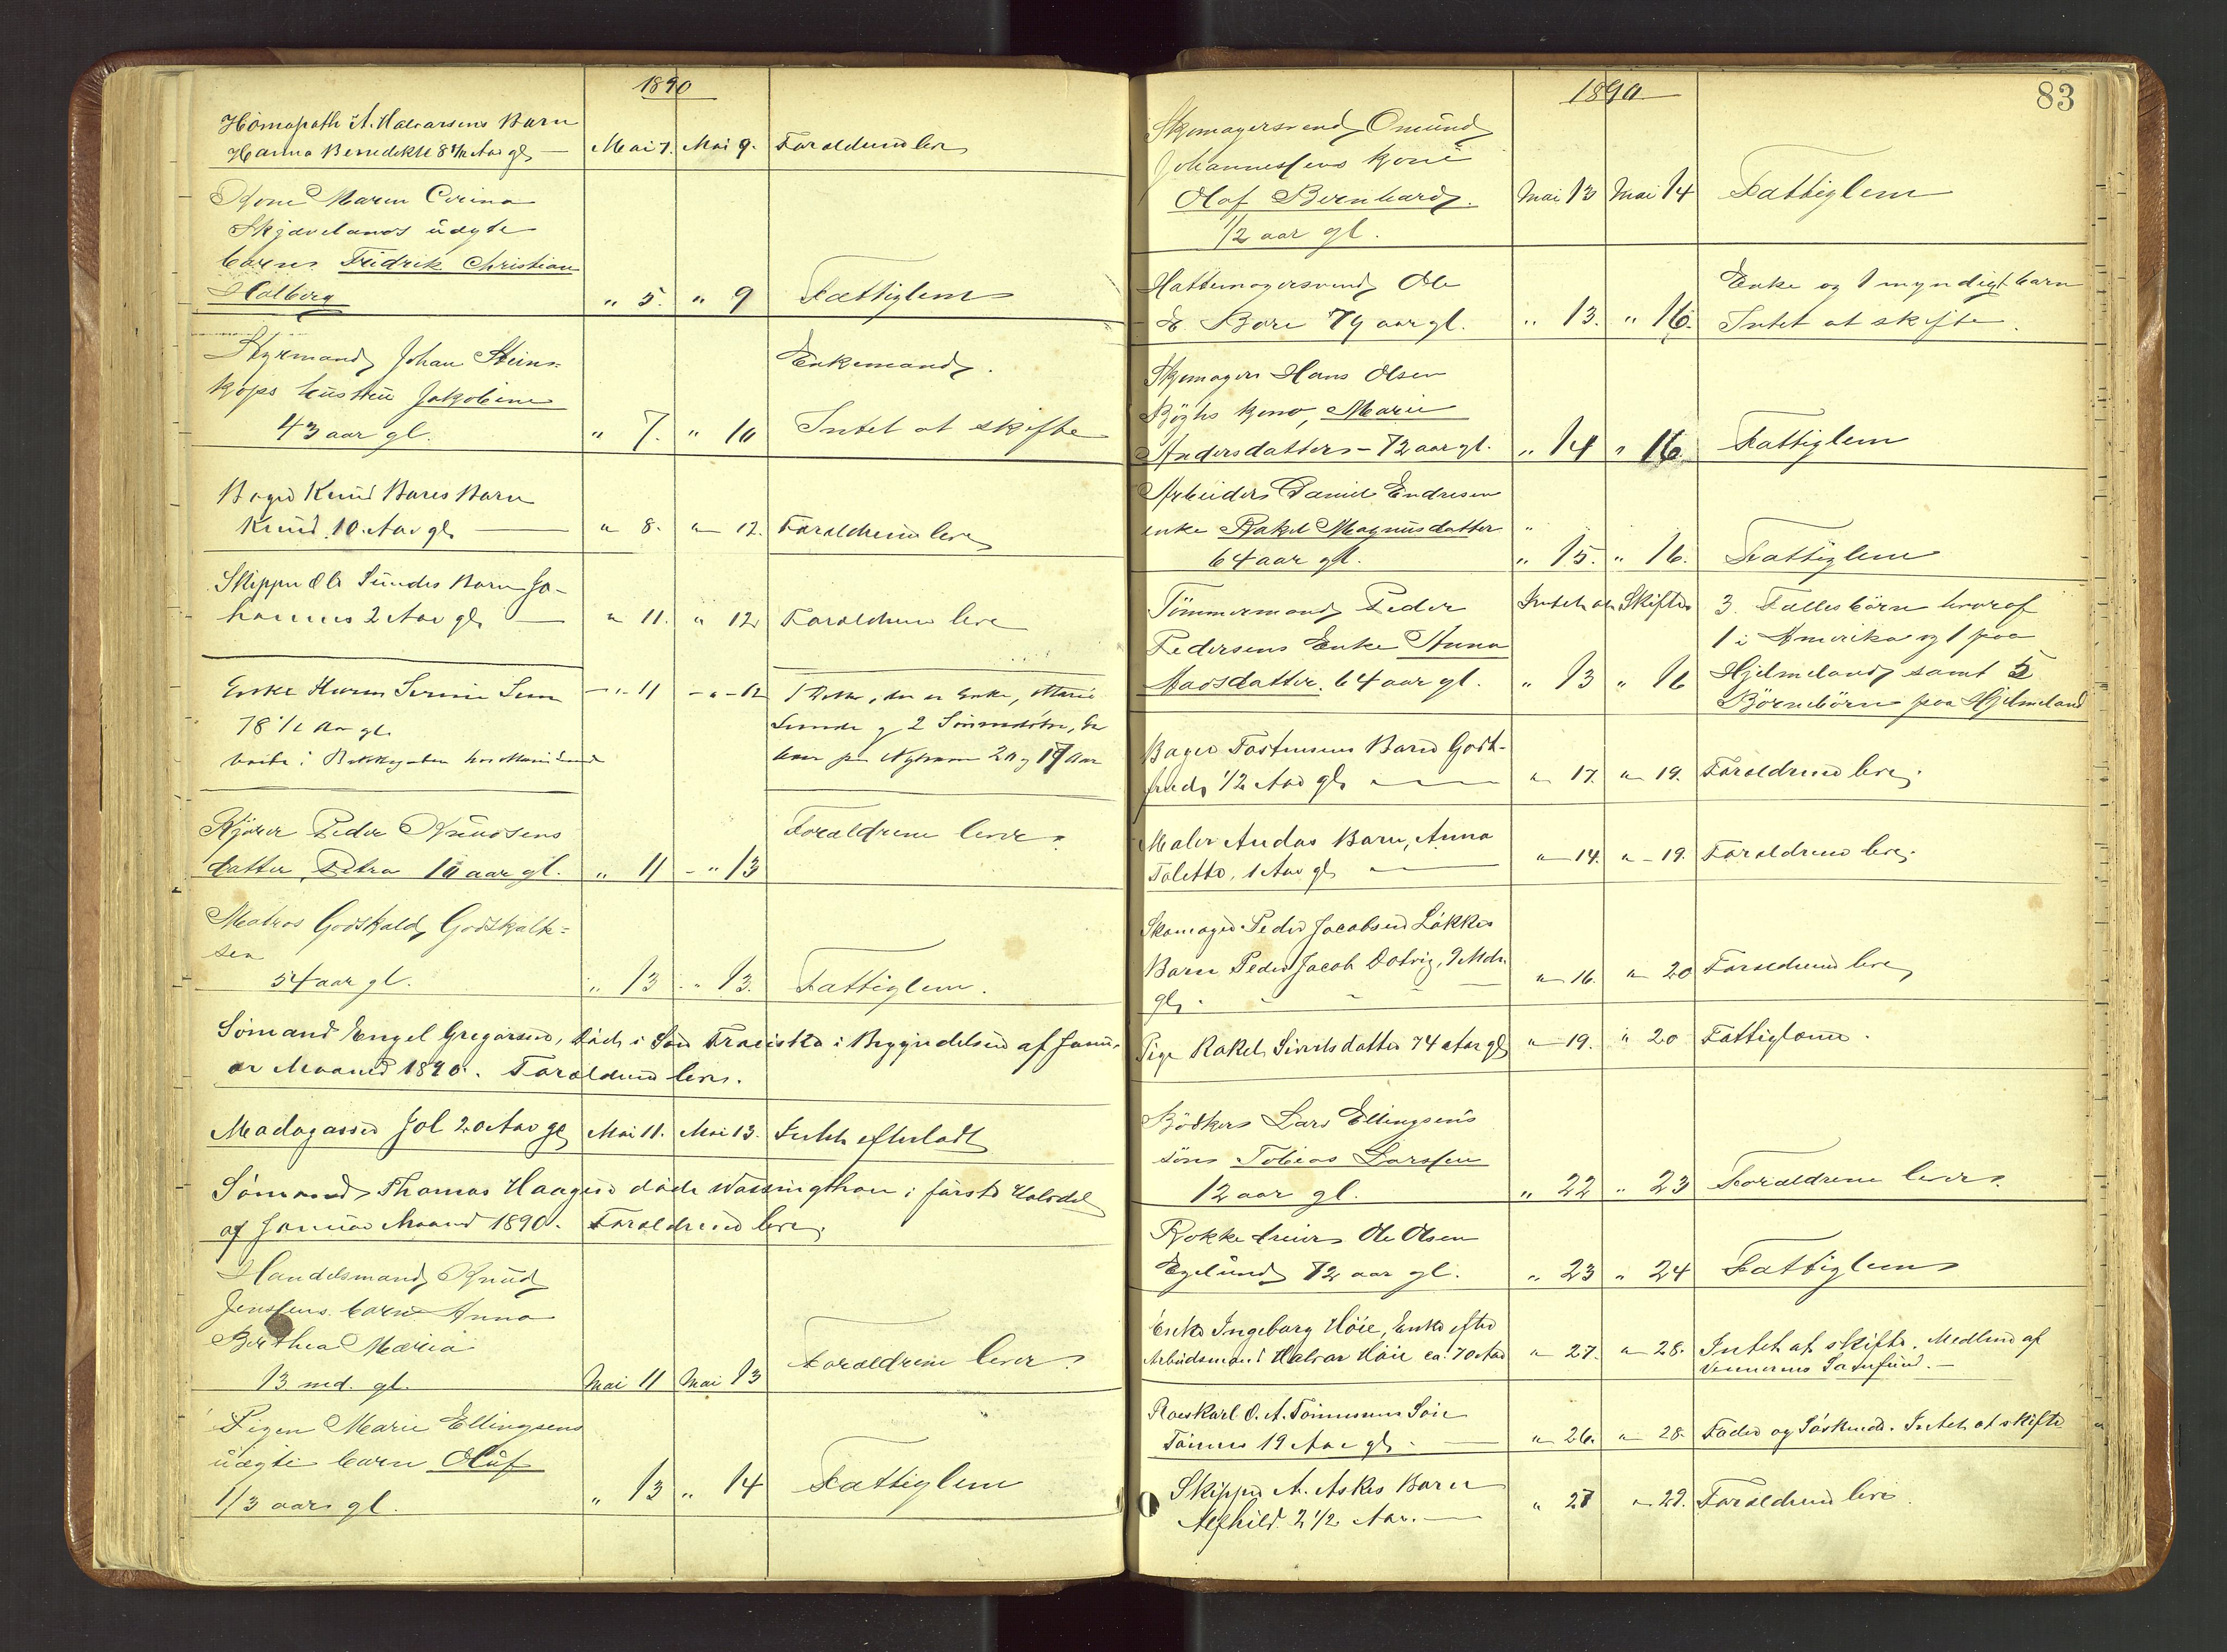 1890
Homøopath A. Halvorsens Barn
Hanna Benedikte 8 Aar gl. Mai 7. Mai 9. Forældrene lever
Kone Maren Corina
Skjævelands uægte
barn Fredrik Christian
Halberg " 5. " 9 Fattiglem
Styrmand Johan Steins-
kops hustru Jakobine Enkemand.
43 aar gl. " 7. " 10 Intet at skifte
Bager Knud Bores Barn
Knud 10 Aar gl. " 8. " 12. Forældrene lever
Skipper Ole Sundes Barn Jo-
hannes 2 Aar gl. " 11. " 12 Forældrene lever
Enke Karen Serine " 11 " 12 1 Datter, der er Enke, Marie
78 1/2 Aar gl. Sunde og 2
20 og 17 Aar
Kjører Peder Knudsens Forældrene lever.
datter Petra 10 aar gl. " 11 " 13
Matros Godskald Godskalk-
sen
54 aar gl. " 13 " 13. Fattiglem.
Sömand Engel Gregersen, död i San Francisko i Begyndelsen af Janu-
ar Maaned 1890. Forældrene lever.
Madagasser Jol 20 Aar gl. Mai 11. Mai 13. Intet efterladt
Sömand Thomas Haagen död Wassingthon i förste Halvdel
af Januar Maaned 1890. Forældrene lever.
Handelsmand Knud
Jensens barn Anna
Berthea Maria
13 md. gl. Mai 11 Mai 13 Forældrene lever.
Pigen Marie Ellingsens
uægte barn Oluf
1/3 aar gl. " 13 " 14 Fattiglem
1890
83
Skomagersvend Omund
Johannessens kone
Olaf Bernhard. Mai 13 Mai 14 Fattiglem
1/2 aar gl.
Hattemagersvend Ole Enke og 1 myndigt barn
E Bore 79 aar gl. " 13. " 16. Intet at skifte.
Skomager Hans Olsen
Bøghs kone, Marie
Andersdatter - 72 aar gl. " 14 " 16. Fattiglem
Arbeider Daniel Endresen
enke Rakel Magnusdatter "
64 aar gl. " 15. " 16. Fattiglem
Tömmermand Peder Intet at Skifte 3. Fællesbörn hvoraf
Pedersens Enke Anna 1 i Amerika og 1 paa
Madsdatter 64 aar gl. " 13 " 16 Hjelmeland samt 5
Börnebörn paa Hjelmeland
Bager Tostensens Barn Gott-
fred 1/2 Aar gl. " 17. " 19. Forældrene lever.
Maler Andas Barn, Anna
Toletta, 1 Aar gl. " 14. " 19. Forældrene lever.
Skomager Peder Jacobsen Løkkes
Barn Peder Jacob 9 Mdr. " 16. " 20 Forældrene lever
gl.
Pige Rakel Sivertsdatter 74 Aar gl. " 19. " 20 Fattiglem.
Bödker Lars Ellingsens
sön Tobias Larssen
12 aar gl. " 22 " 23 Forældrene lever.
Rokkedreier Ole Olsen
Egelund 72 aar gl. " 23 " 24 Fattiglem
Enke Ingeborg Höie, Enke efter
Arbeidsmand Halvor Höie ca. 70 Aar " 27. " 28. Intet at skifte. Medlem af
Vennernes Samfund.
Roeskarl O. A. Tönnesens Sön
Tönnes 19 Aar gl. " 26. " 28. Fader og Söskende. Intet at skifte
Skipper A. Askes Barn
Alfhild 2 1/2 Aar. " 27 " 29. Forældrene lever.